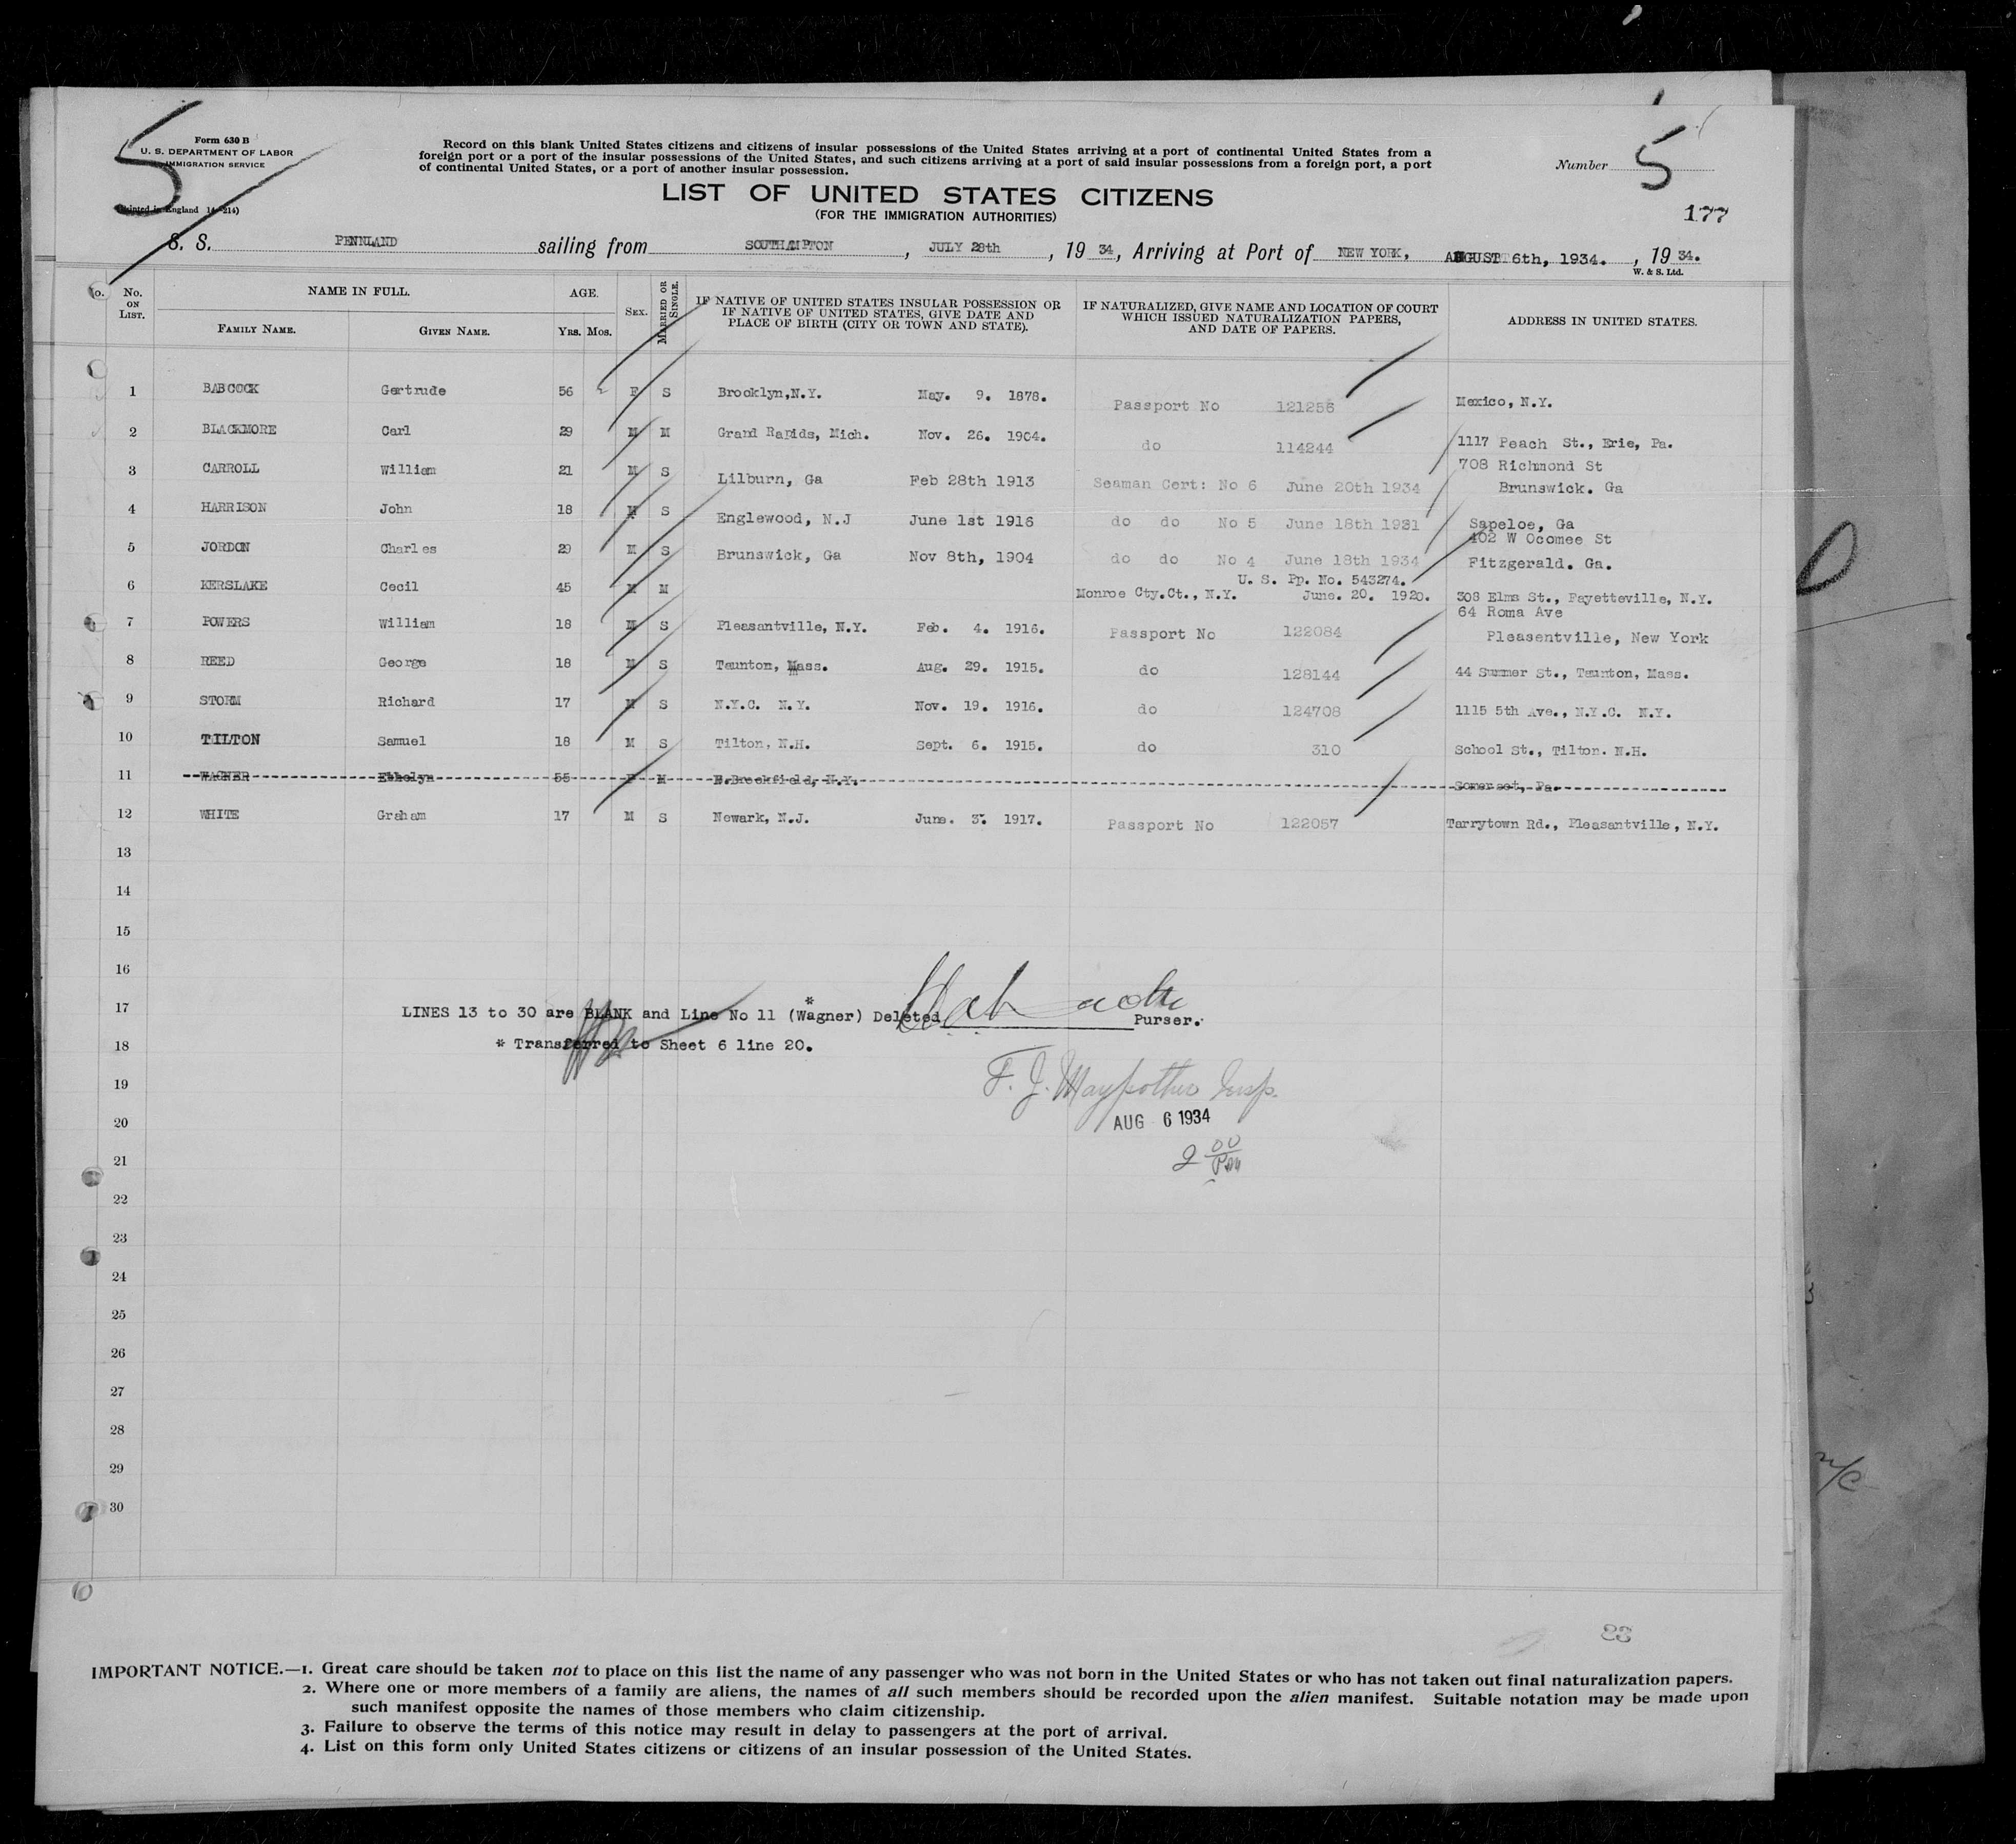 5
Form 630 B
U. S. DEPARTMENT OF LABOR
IMMIGRATION SERVICE
Record on this blank United States citizens and citizens of insular possessions of the United States arriving at a port of continental United States from a
foreign port or a port of the insular possessions of the United States, and such citizens arriving at a port of said insular possessions from a foreign port, a port
of continental United States, or a port of another insular possession.
Number 5
LIST OF UNITED STATES CITIZENS
(FOR THE IMMIGRATION AUTHORITIES)
177
S. S. PENNLAND sailing from SOUTHAMPTON, JULY 28th, 19 34, Arriving at Port of NEW YORK, AUGUST 6th, 1934. , 19 34.
W. & S. Ltd.
No. ON LIST. NAME IN FULL. AGE. SEX. MARRIED OR SINGLE. IF NATIVE OF UNITED STATES INSULAR POSSESSION OR IF NATIVE OF UNITED STATES, GIVE DATE AND PLACE OF BIRTH (CITY OR TOWN AND STATE). IF NATURALIZED, GIVE NAME AND LOCATION OF COURT WHICH ISSUED NATURALIZATION PAPERS, AND DATE OF PAPERS. ADDRESS IN UNITED STATES.
FAMILY NAME. GIVEN NAME. YRS. MOS.
1 BABCOCK Gertrude 56 F S Brooklyn,N.Y. May. 9. 1878. Passport No 121256 Mexico, N.Y.
2 BLACKMORE Carl 29 M M Grand Rapids, Mich. Nov. 26. 1904. do 114244 1117 Peach St., Erie, Pa.
3 CARROLL William 21 M S Lilburn, Ga Feb 28th 1913 Seaman Cert: No 6 June 20th 1934 708 Richmond St
Brunswick. Ga
4 HARRISON John 18 M S Englewood, N.J June 1st 1916 do do No 5 June 18th 1931 Sapeloe, Ga
5 JORDON Charles 29 M S Brunswick, Ga Nov 8th, 1904 do do No 4 June 18th 1934 402 W Ocomee St
Fitzgerald. Ga.
U. S. Pp. No. 543274.
6 KERSLAKE Cecil 45 M M Monroe Cty.Ct., N.Y. June. 20. 1920. 308 Elms St., Fayetteville, N.Y.
7 POWERS William 18 M S Pleasantville, N.Y. Feb. 4. 1916. Passport No 122084 64 Roma Ave
Pleasentville, New York
8 REED George 18 M S Taunton, Mass. Aug. 29. 1915. do 128144 44 Summer St., Taunton, Mass.
9 STORM Richard 17 M S N.Y.C. N.Y. Nov. 19. 1916. do 124708 1115 5th Ave., N.Y.C. N.Y.
10 TILTON Samuel 18 M S Tilton, N.H. Sept. 6. 1915. do 310 School St., Tilton. N.H.
11 WAGNER Ethelyn 55 F M N.Brookfield, N.Y. Somerset, Pa.
12 WHITE Graham 17 M S Newark, N.J. June. 3. 1917. Passport No 122057 Tarrytown Rd., Pleasantville, N.Y.
13
14
15
16
17
18
19
20
21
22
23
24
25
26
27
28
29
30
LINES 13 to 30 are BLANK and Line No 11 (Wagner)* Deleted Purser.
* Transferred to Sheet 6 line 20.
AUG 6 1934
2 00 PM
IMPORTANT NOTICE.—1. Great care should be taken not to place on this list the name of any passenger who was not born in the United States or who has not taken out final naturalization papers.
2. Where one or more members of a family are aliens, the names of all such members should be recorded upon the alien manifest. Suitable notation may be made upon
such manifest opposite the names of those members who claim citizenship.
3. Failure to observe the terms of this notice may result in delay to passengers at the port of arrival.
4. List on this form only United States citizens or citizens of an insular possession of the United States.